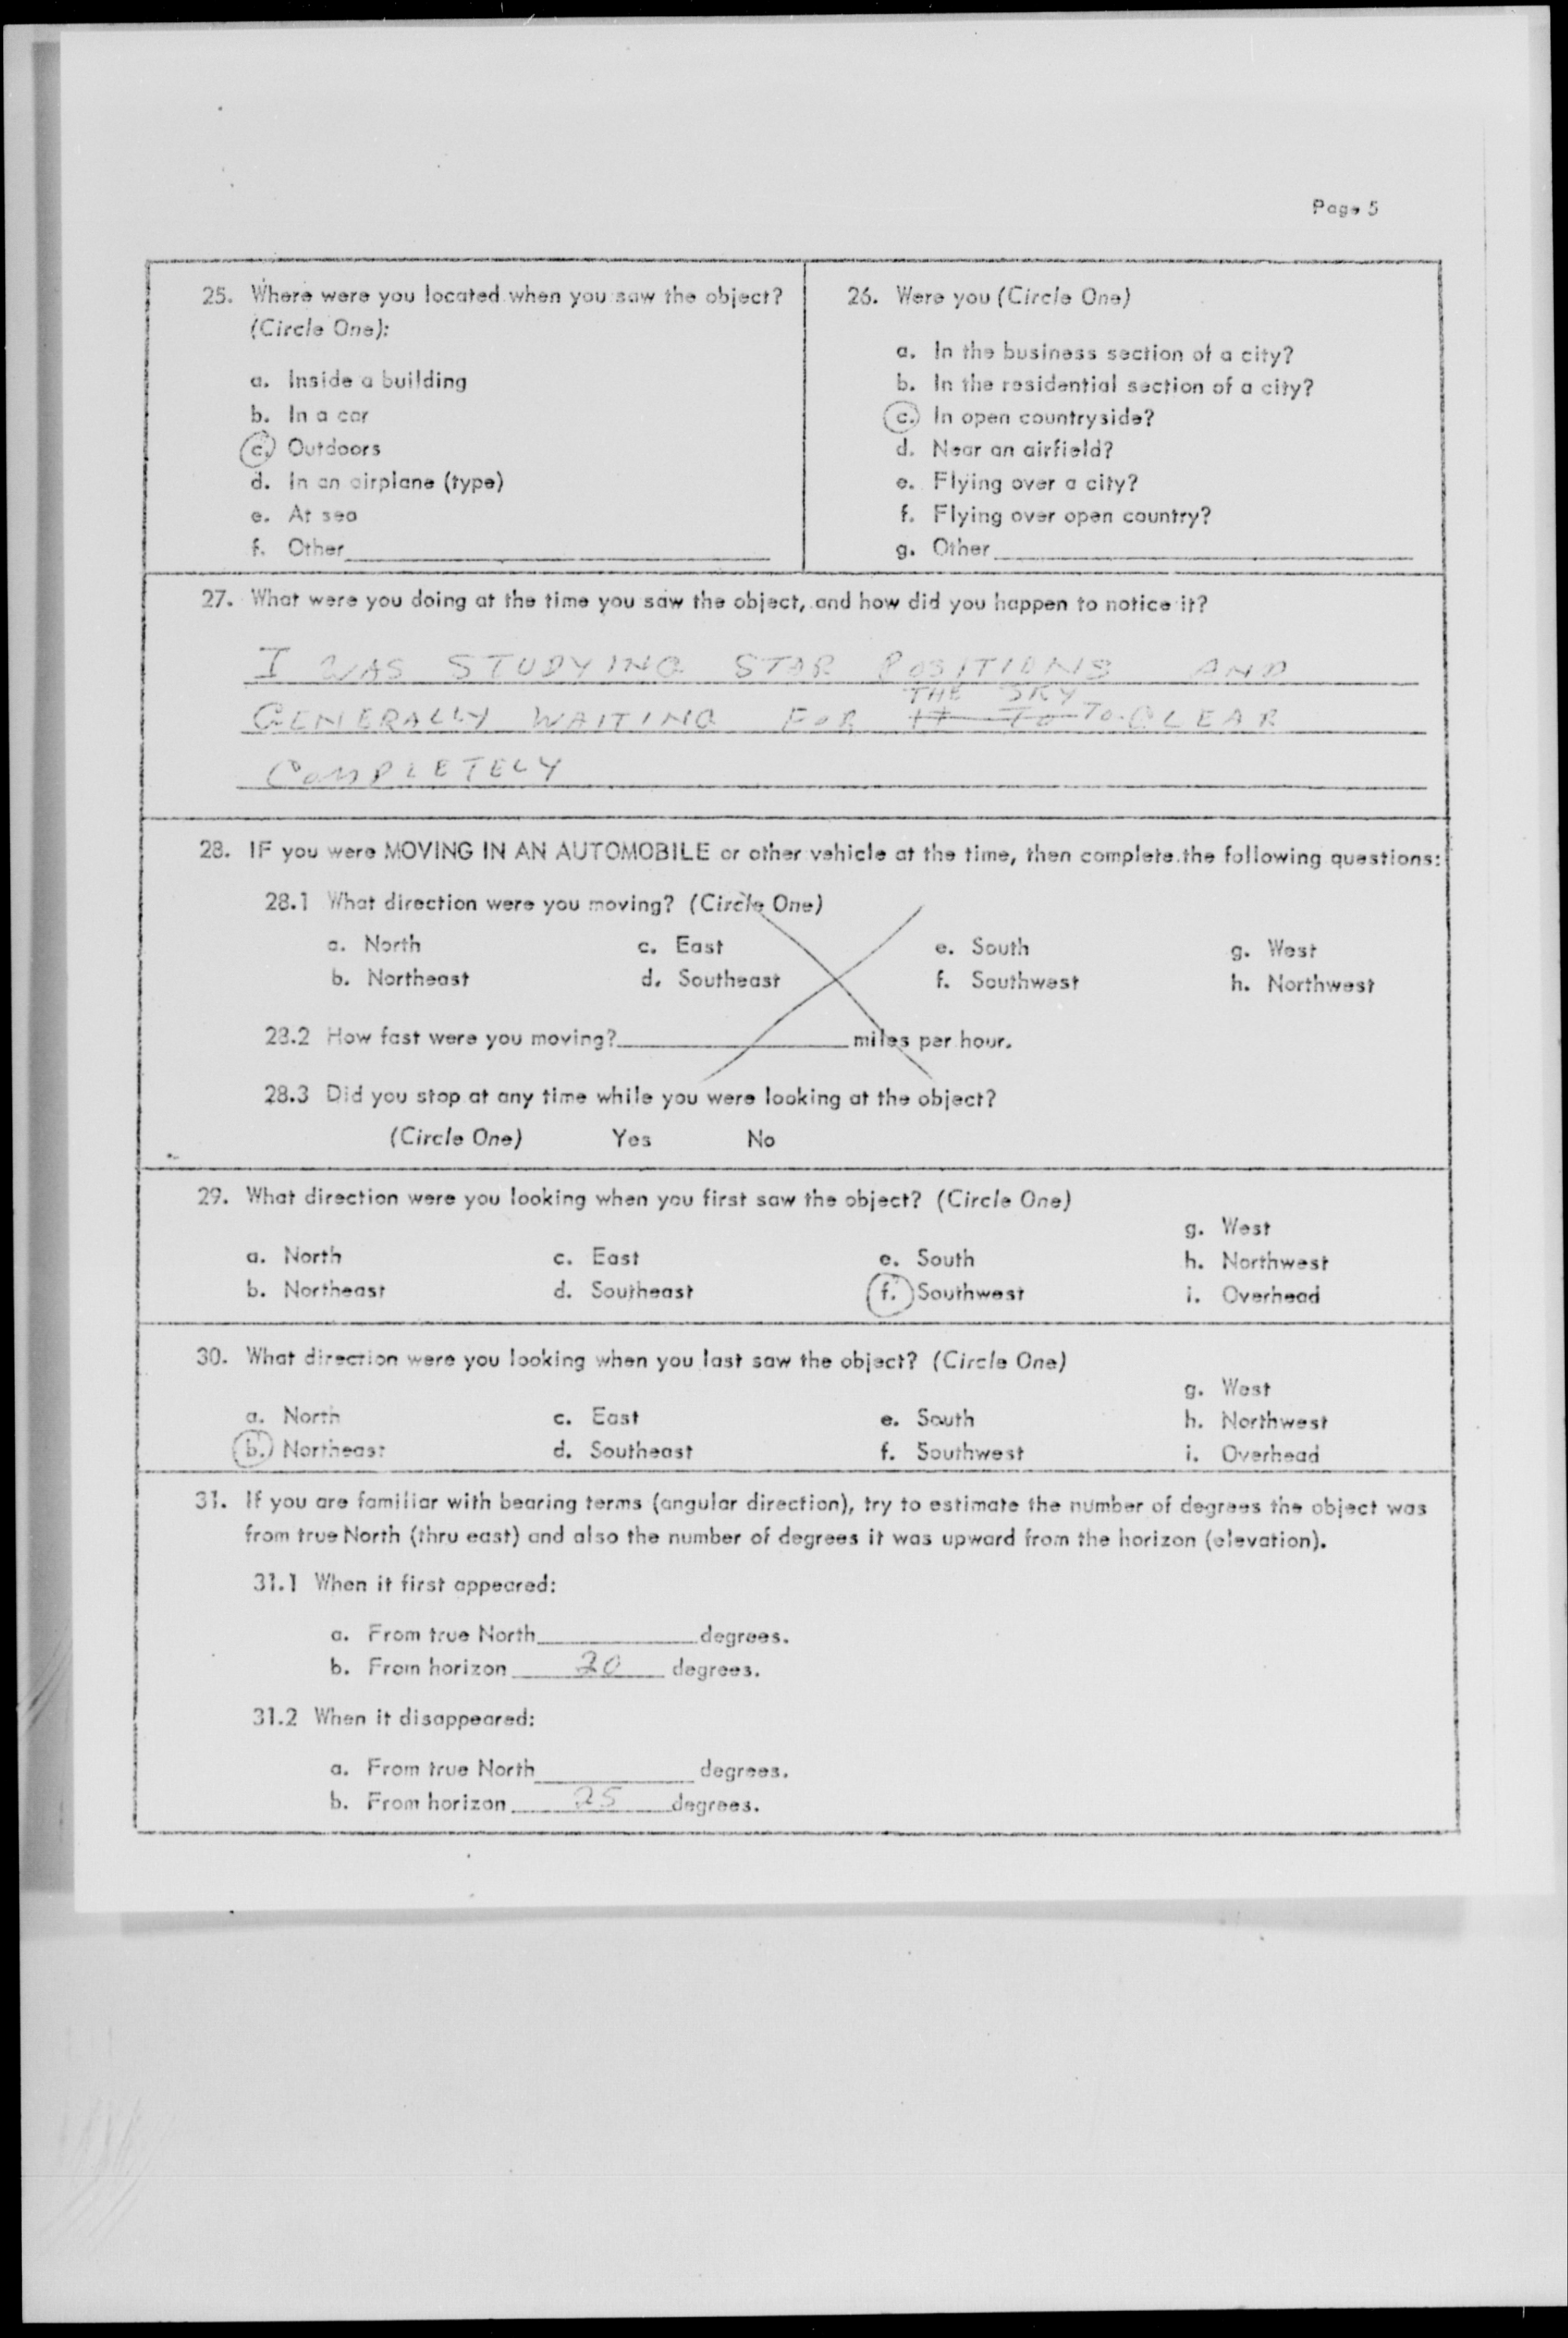 Page 5
25. Where were you located when you saw the object?
(Circle One):
a. Inside a building
b. In a car
c. Outdoors
d. In an airplane (type)
e. At sea
f. Other
26. Were you (Circle One)
a. In the business section of a city?
b. In the residential section of a city?
c. In open countryside?
d. Near an airfield?
e. Flying over a city?
f. Flying over open country?
g. Other
27. What were you doing at the time you saw the object, and how did you happen to notice it?
I WAS STUDYING STAR POSITIONS AND
THE SKY
GENERALLY WAITING FOR IT TO TO CLEAR
COMPLETELY
28. IF you were MOVING IN AN AUTOMOBILE or other vehicle at the time, then complete the following questions:
28.1 What direction were you moving? (Circle One)
a. North c. East e. South g. West
b. Northeast d. Southeast f. Southwest h. Northwest
28.2 How fast were you moving? miles per hour.
28.3 Did you stop at any time while you were looking at the object?
(Circle One) Yes No
29. What direction were you looking when you first saw the object? (Circle One)
g. West
a. North c. East e. South h. Northwest
b. Northeast d. Southeast f. Southwest i. Overhead
30. What direction were you looking when you last saw the object? (Circle One)
g. West
a. North c. East e. South h. Northwest
b. Northeast d. Southeast f. Southwest i. Overhead
31. If you are familiar with bearing terms (angular direction), try to estimate the number of degrees the object was
from true North (thru east) and also the number of degrees it was upward from the horizon (elevation).
31.1 When it first appeared:
a. From true North degrees.
b. From horizon 20 degrees.
31.2 When it disappeared:
a. From true North degrees.
b. From horizon 25 degrees.